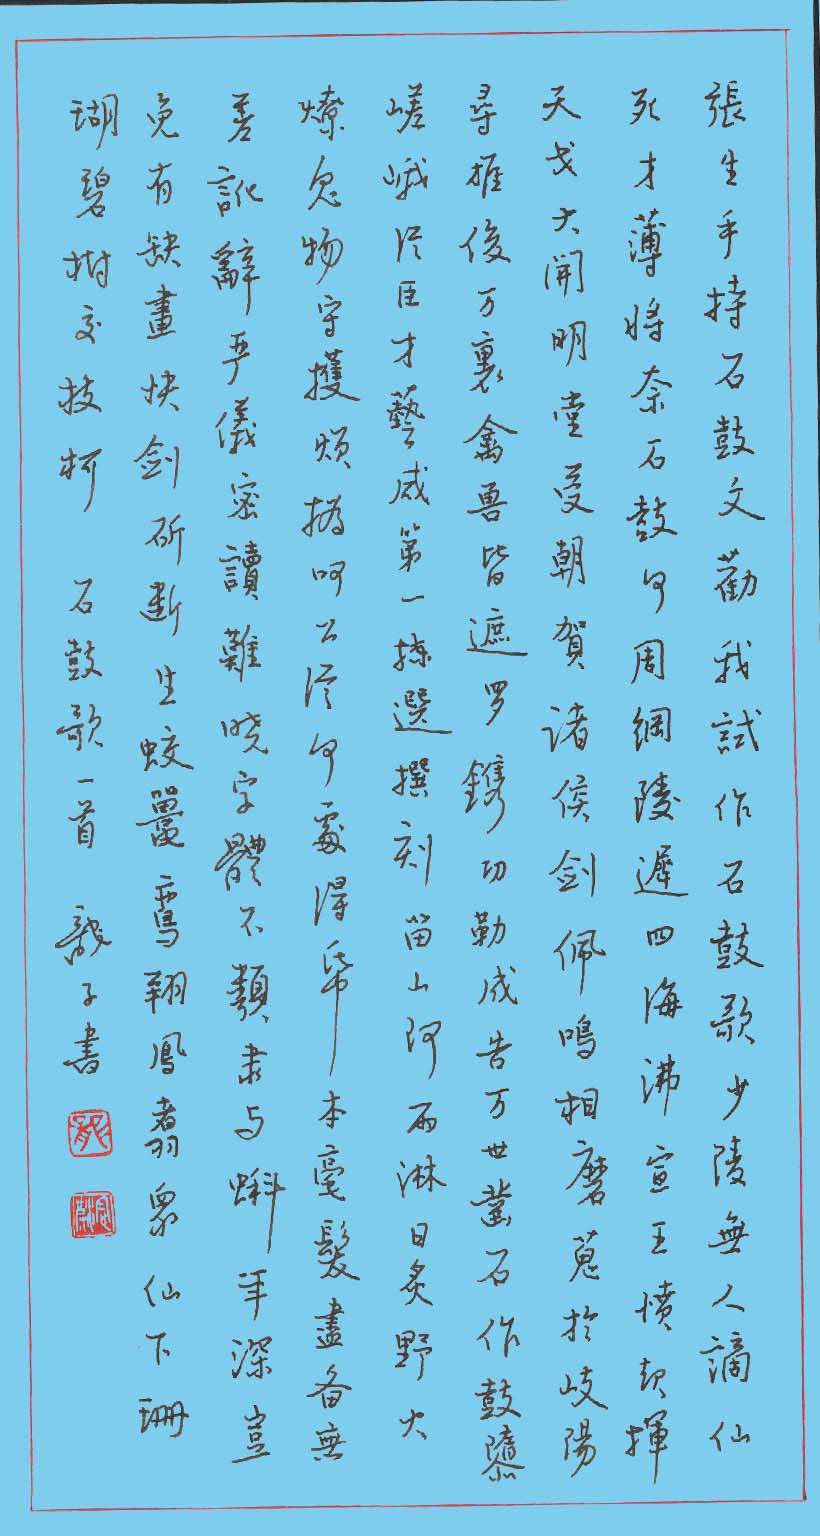 張生手持石鼓文勸我試作石鼓歌少陵無人謫仙
死才薄將奈石鼓何周綱陵遲四海沸宣王憤起揮
天戈大開明堂受朝賀诸侯剑佩鳴相磨蒐於岐陽
尋雄俊万裏禽兽皆遮罗鐫功勒成告万世凿石作鼓隳
嵯峨從臣才藝咸第一揀選撰刻留山阿雨淋日炙野火
燎鬼物守護煩撝呵公從何處得紙本毫髮盡备無
差訛辭严儀密讀難晓字體不類隶与蝌年深豈
免有缺畫快剑斫断生蛟鼉鸞翔鳳翥眾仙下珊
瑚碧樹交枝柯 石鼓歌一首 子書